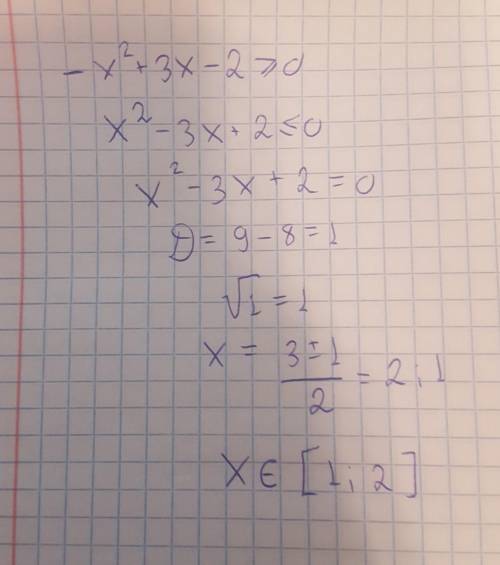 -x²+3x-2≥0
x²-3x+2≤0
x²-3x+2=0
D=9-8=1
√1=1
x = (3±1)/2 = 2; 1
X∈[1; 2]